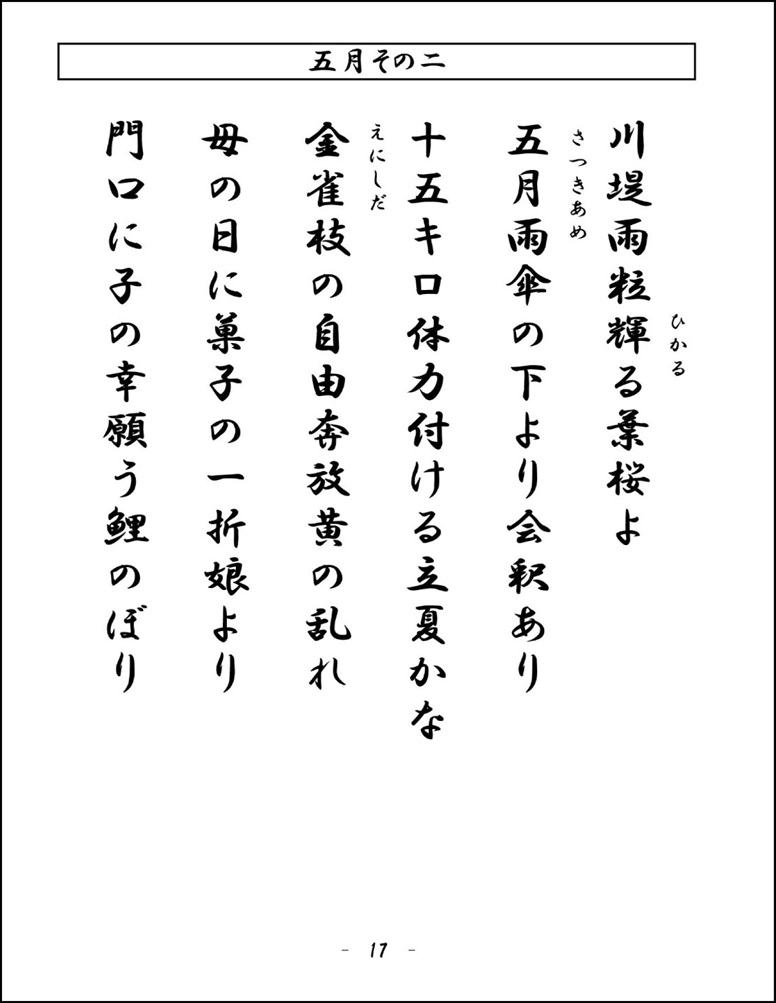 五月その二
川堤雨粒輝る葉桜よ
ひかる
五月雨傘の下より会釈あり
さつきあめ
十五キロ体力付ける立夏かな
金雀枝の自由奔放黄の乱れ
えにしだ
母の日に菓子の一折娘より
門口に子の幸願う鯉のぼり
- 17 -